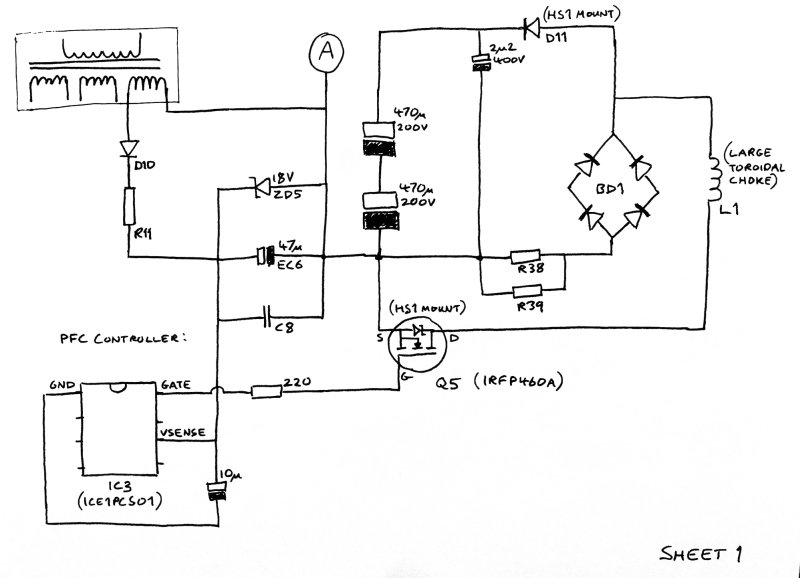 (HS1 MOUNT)
D11
A
2µ2
400V
470µ
200V
(LARGE
TOROIDAL
CHOKE)
L1
D10
18V
ZD5
BD1
470µ
200V
R11
47µ
EC6
R38
R39
C8
(HS1 MOUNT)
PFC CONTROLLER:
S
D
G
Q5 (IRFP460A)
GND
GATE
220
VSENSE
IC3
(ICE1PCS01)
10µ
SHEET 1